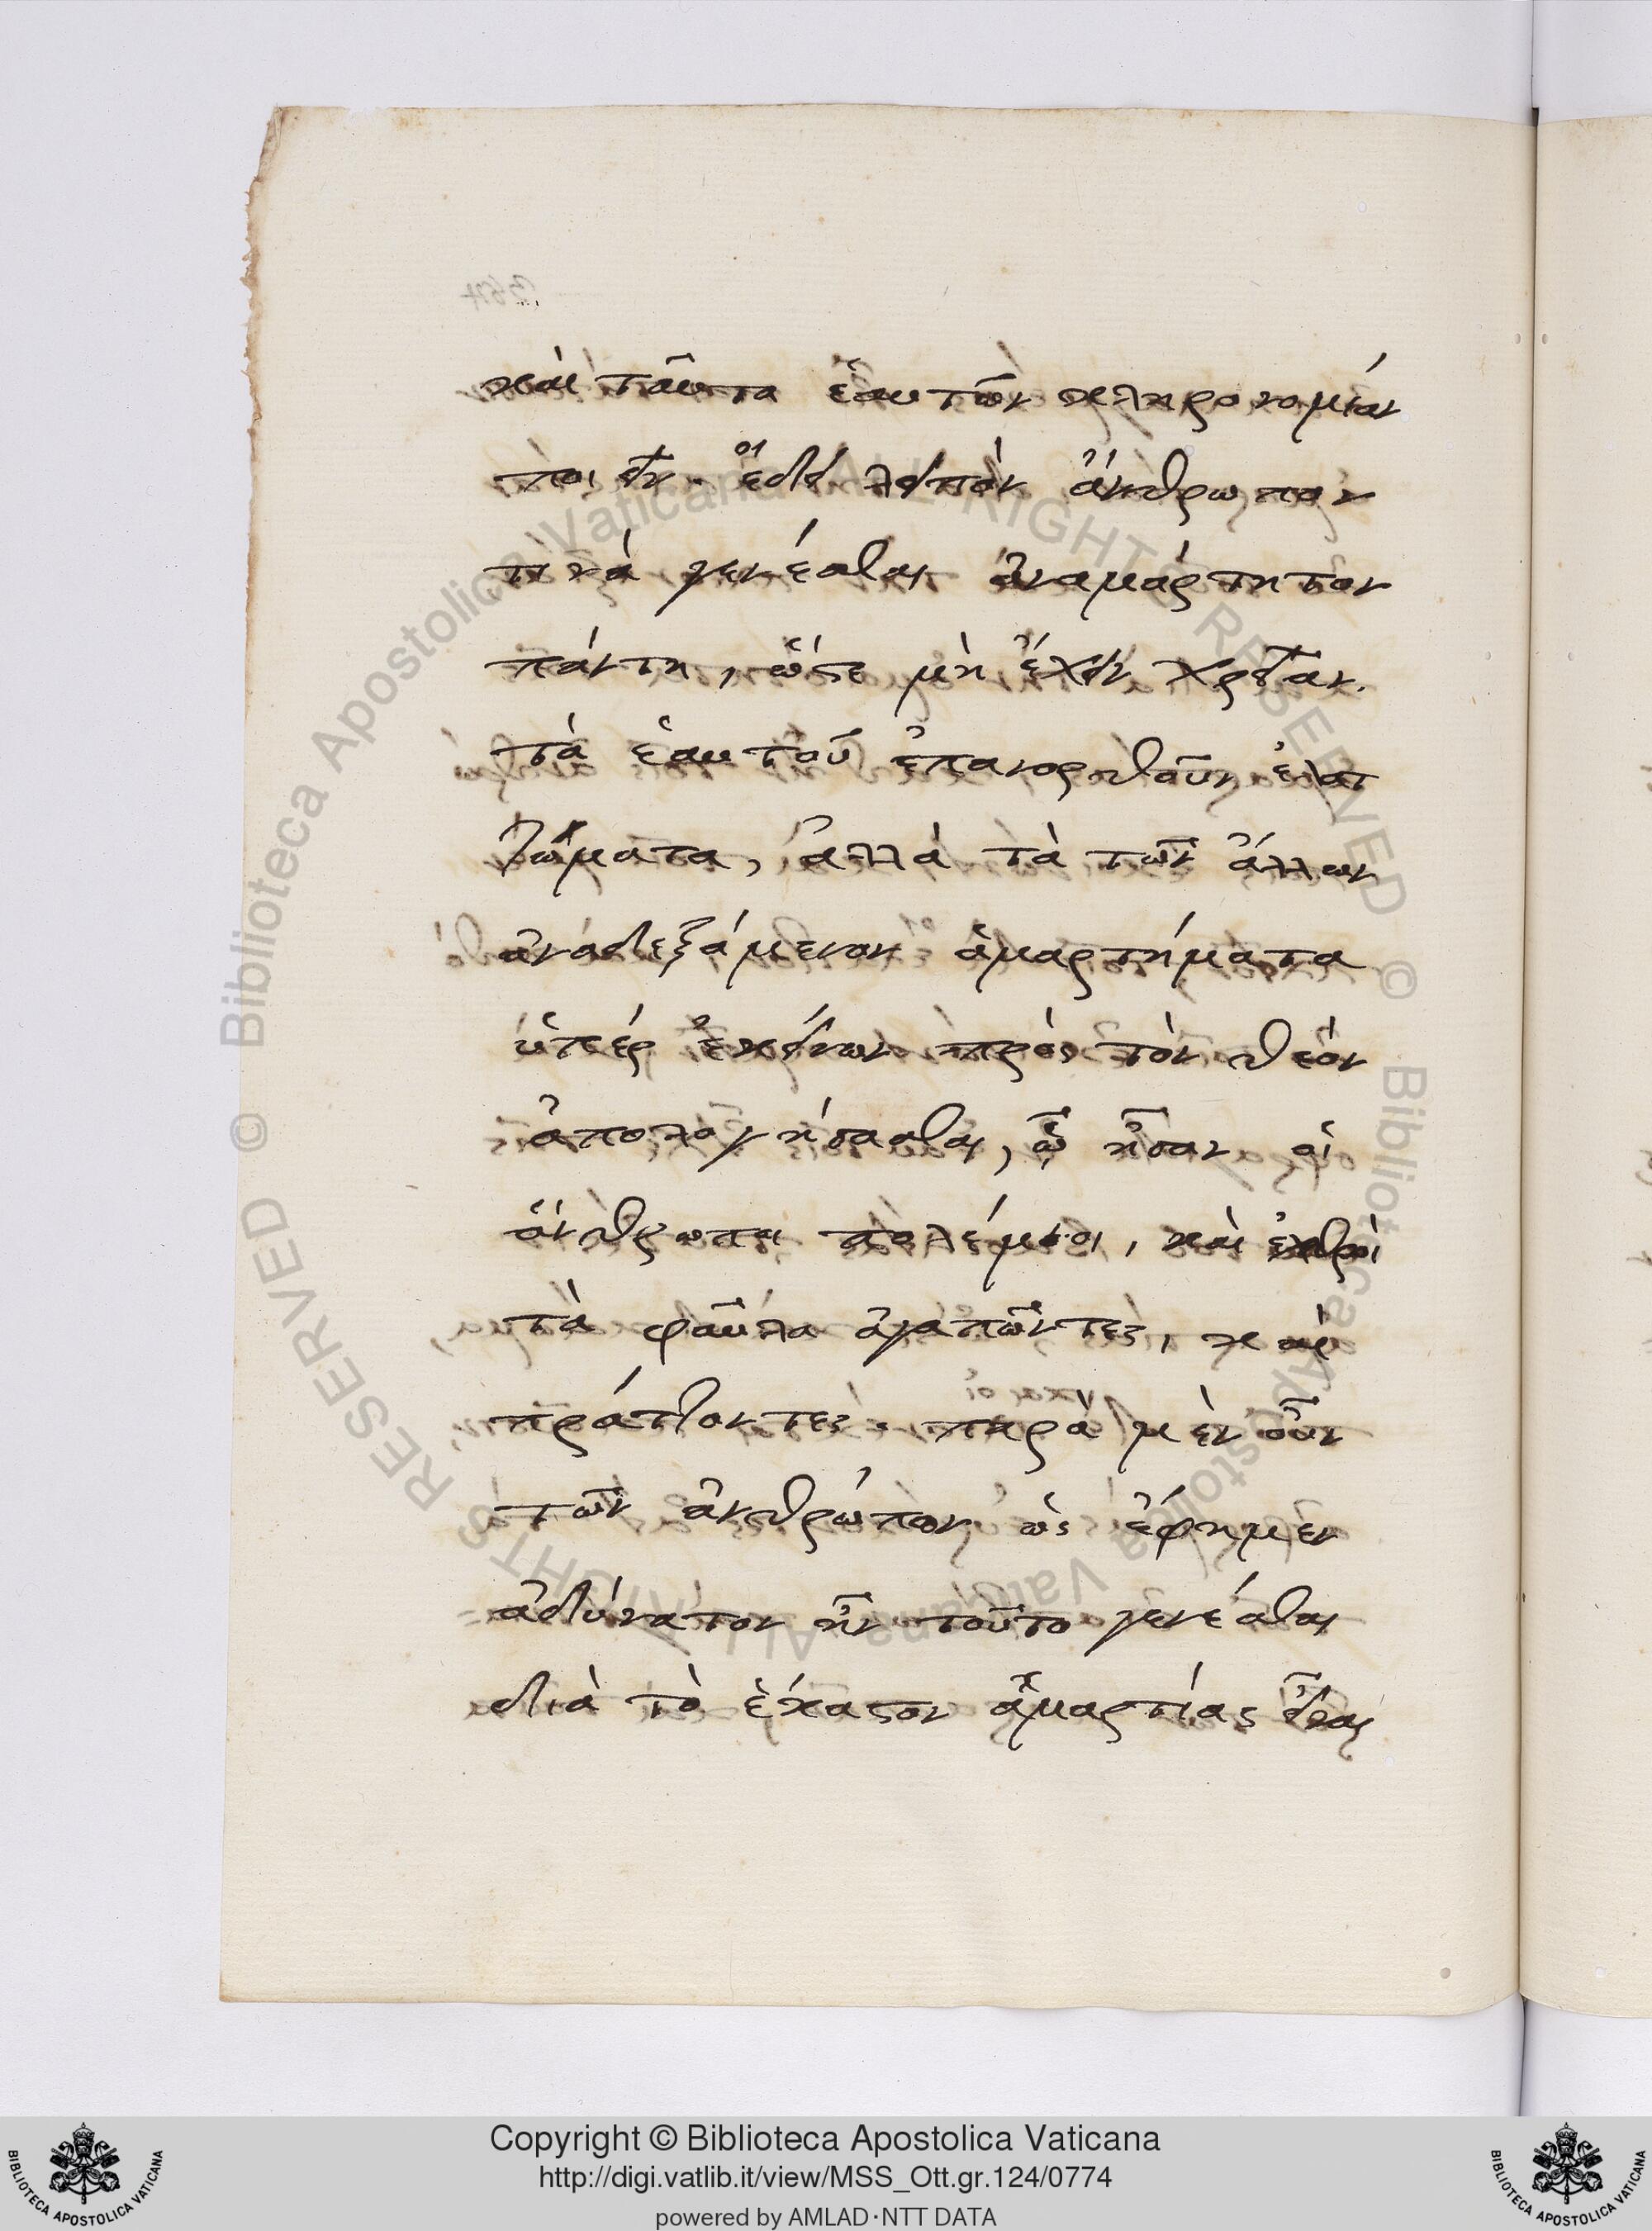 καὶ ταῦτα ἑαυτῶν κληρονομίαν
ποιεῖν. ἔδει λοιπὸν ἄνθρωπον
τινὰ γενέσθαι ἀναμάρτητον
πάντη, ὥστε μὴ ἔχειν χρείαν.
τὰ ἑαυτοῦ ἐπανορθοῦν ἐλατ
τώματα, ἀλλὰ τὰ τῶν ἄλλων
ἀναδεξάμενον ἁμαρτήματα
ὑπὲρ ἐκείνων πρὸς τὸν θεὸν
ἀπολογήσασθαι, ᾧ ἦσαν οἱ
ἄνθρωποι πολέμιοι, καὶ ἐχθροὶ
τὰ φαῦλα ἀγαπῶντες, καὶ
πράττοντες. παρὰ μὲν οὖν
τῶν ἀνθρώπων ὡς ἔφημεν
ἀδύνατον ἦν τοῦτο γενέσθαι
διὰ τὸ ἕκαστον ἁμαρτίας εἶναι
© Biblioteca Apostolica Vaticana ALL RIGHTS RESERVED
© Biblioteca Apostolica Vaticana ALL RIGHTS RESERVED
Copyright © Biblioteca Apostolica Vaticana
http://digi.vatlib.it/view/MSS_Ott.gr.124/0774
powered by AMLAD·NTT DATA
BIBLIOTECA APOSTOLICA VATICANA
BIBLIOTECA APOSTOLICA VATICANA